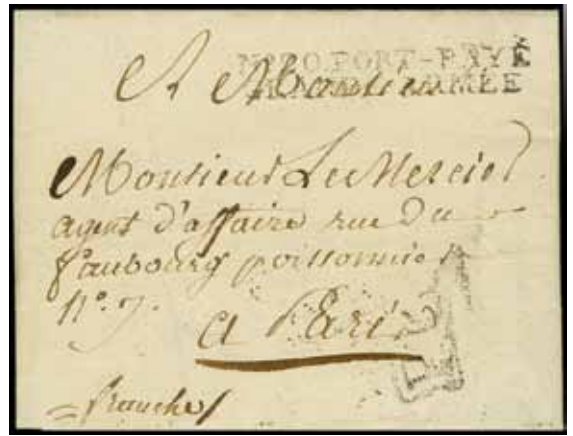 No. 20 PORT-PAYÉ
GRANDE-ARMÉE
A Monsieur
Monsieur Le Mercier
agent d'affaire rue Du
faubourg poissonnier
No. 7.
a Paris
franche